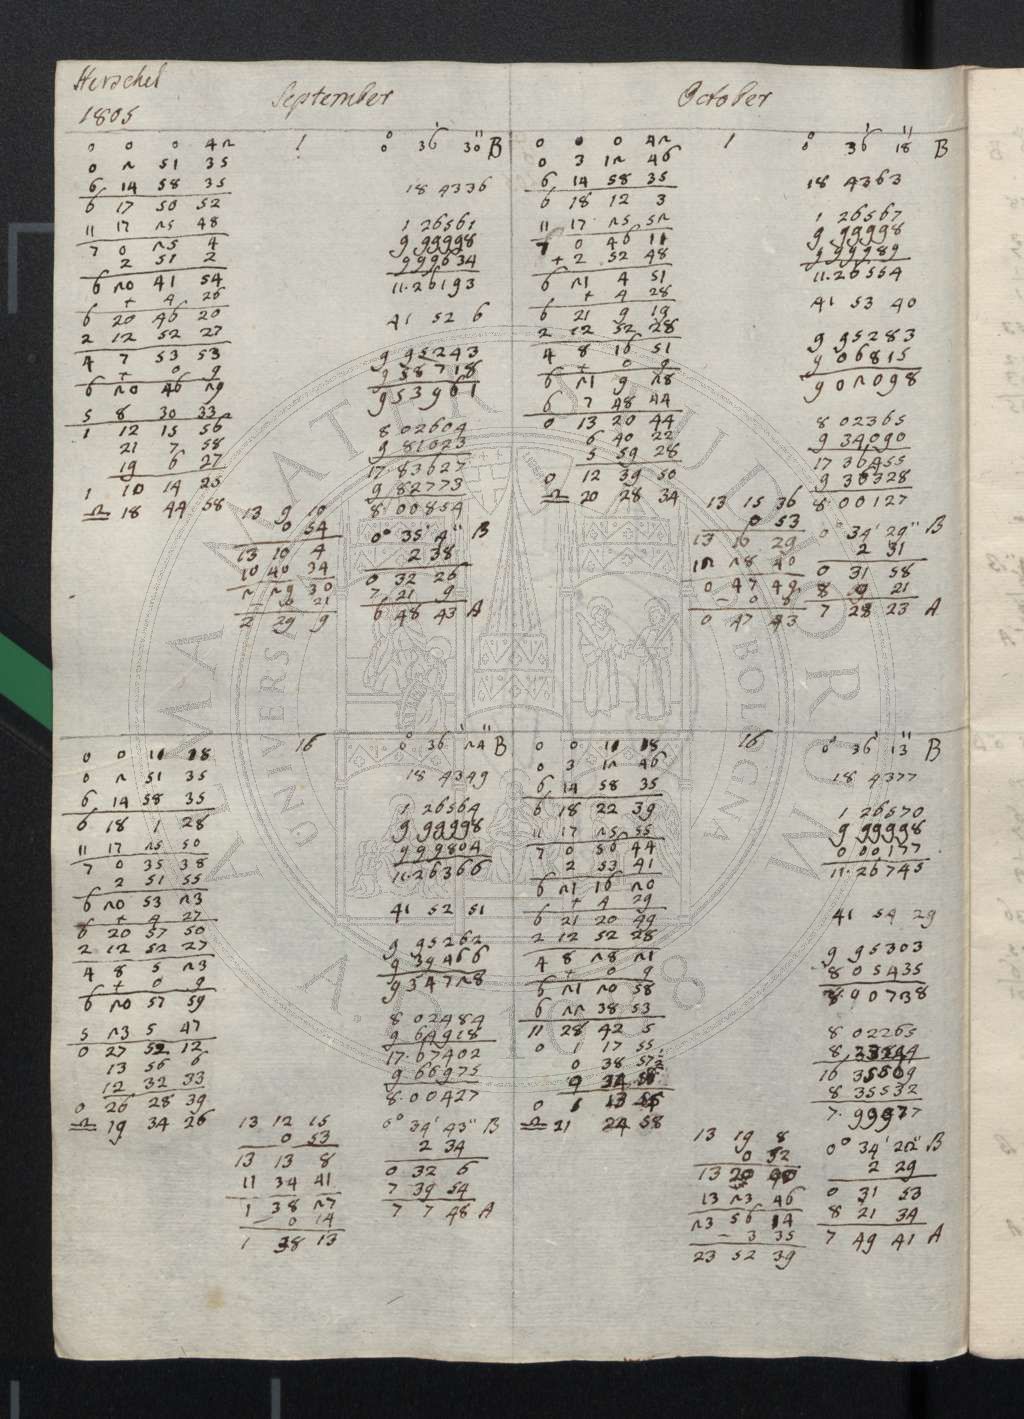 Herschel
1805
September
October
1
0° 36' 30" B
0 0 0 42
0 2 51 35
6 14 58 35
6 17 50 52
11 17 25 48
7 0 25 4
2 51 2
6 20 41 54
+ 4 26
6 20 46 20
2 12 52 27
4 7 53 53
+ 0 9
6 20 46 29
5 8 30 33
1 12 15 56
21 7 58
19 6 27
1 10 14 25
♎ 18 44 58
13 9 10
0 54
13 10 4
10 40 34
2 29 30
- 0 21
2 29 9
18 4336
1 26561
9 99998
9 99634
11.26193
41 52 6
9 95243
9 58718
9 53961
8 02604
9 81023
17.83627
9 82773
8.00854
0° 35' 4" B
2 38
0 32 26
7 21 9
6 48 43 A
1
0° 36' 18" B
0 0 0 42
0 3 12 46
6 14 58 35
6 18 12 3
11 17 25 52
7 0 46 11
+ 2 52 48
6 21 4 51
+ 4 28
6 21 9 19
2 12 52 28
4 8 16 51
+ 0 9
6 21 9 28
6 7 48 44
0 13 20 44
6 40 22
5 59 28
0 12 39 50
♎ 20 28 34
13 15 36
0 53
13 16 29
12 28 40
0 47 49
- 0 8
0 47 43
18 4363
1 26567
9 99998
9 99989
11.26554
41 53 40
9 95283
9 06815
9 02098
8 02365
9 34090
17 36455
9 36328
8.00127
0° 34' 29" B
2 31
0 31 58
8 0 21
7 28 23 A
16
0° 36' 24" B
0 0 11 18
0 2 51 35
6 14 58 35
6 18 1 28
11 17 25 50
7 0 35 38
2 51 55
6 20 53 23
+ 4 27
6 20 57 50
2 12 52 27
4 8 5 23
+ 0 9
6 20 57 59
5 23 5 47
0 27 52 12
13 56 6
12 32 33
0 26 28 39
♎ 19 34 26
13 12 15
0 53
13 13 8
11 34 41
1 38 27
- 0 14
1 38 13
18 4349
1 26564
9 99998
9 99804
11.26366
41 52 51
9 95262
9 39466
9 34728
8 02484
9 64918
17.67402
9 66975
8 00427
0° 34' 43" B
2 34
0 32 6
7 39 54
7 7 48 A
16
0° 36' 13" B
0 0 11 18
0 3 12 46
6 14 58 35
6 18 22 39
11 17 25 55
7 0 56 44
2 53 41
6 21 16 20
+ 4 29
6 21 20 49
2 12 52 28
4 8 28 21
+ 0 9
6 21 20 58
6 22 38 53
11 28 42 5
0 1 17 55
0 38 57½
0 34
0 1 13
♎ 21 24 58
13 19 8
0 52
13 20
13 23 46
23 56 14
- 3 35
23 52 39
18 4377
1 26570
9 99998
0 00177
11.26745
41 54 29
9 95303
8 05435
8.90738
8 02265
16 35509
8 35532
7.99977
0° 34' 22" B
2 29
0 31 53
8 21 34
7 49 41 A
ALMA MATER STUDIORUM
UNIVERSITÀ DI BOLOGNA